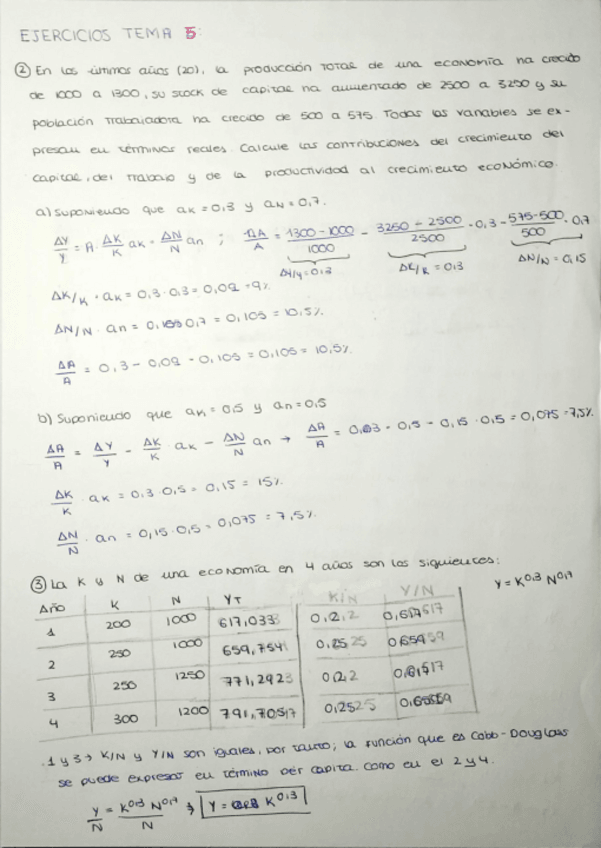 EJERCICIOS TEMA 5:
② En los últimos años (20), la producción TOTAL de una economía ha crecido
de 1000 a 1300, su stock de capital ha aumentado de 2500 a 3250 y su
población trabajadora ha crecido de 500 a 575. Todas las variables se ex-
presan en términos reales. Calcule las contribuciones del crecimiento del
capital, del trabajo y de la productividad al crecimiento económico.
a) Suponiendo que ak = 0,3 y an = 0,7.
ΔY/Y = A · ΔK/K ak · ΔN/N an ; ΔA/A = 1300-1000/1000 - 3250-2500/2500 · 0,3 - 575-500/500 · 0,7
Δy/y = 0,3 ΔK/K = 0,3 ΔN/N = 0,15
ΔK/K · ak = 0,3 · 0,3 = 0,09 = 9%
ΔN/N · an = 0,15 · 0,7 = 0,105 = 10,5%
ΔA/A = 0,3 - 0,09 - 0,105 = 0,105 = 10,5%
b) Suponiendo que ak = 0,5 y an = 0,5
ΔA/A = ΔY/Y - ΔK/K · ak - ΔN/N an → ΔA/A = 0,3 · 0,5 - 0,15 · 0,5 = 0,075 = 7,5%
ΔK/K · ak = 0,3 · 0,5 = 0,15 = 15%
ΔN/N · an = 0,15 · 0,5 = 0,075 = 7,5%
③ La K y N de una economía en 4 años son los siguientes:
Año K N YT K/N Y/N Y = K^0,3 N^0,7
1 200 1000 617,033 0,2 0,617
2 250 1000 659,754 0,25 0,659
3 250 1250 771,292 0,2 0,617
4 300 1200 791,705 0,25 0,659
. 1 y 3 → K/N y Y/N son iguales, por tanto, la función que es Cobb-Douglas
se puede expresar en término per capita. Como en el 2 y 4.
Y/N = K^0,3 N^0,7/N → Y = K^0,3